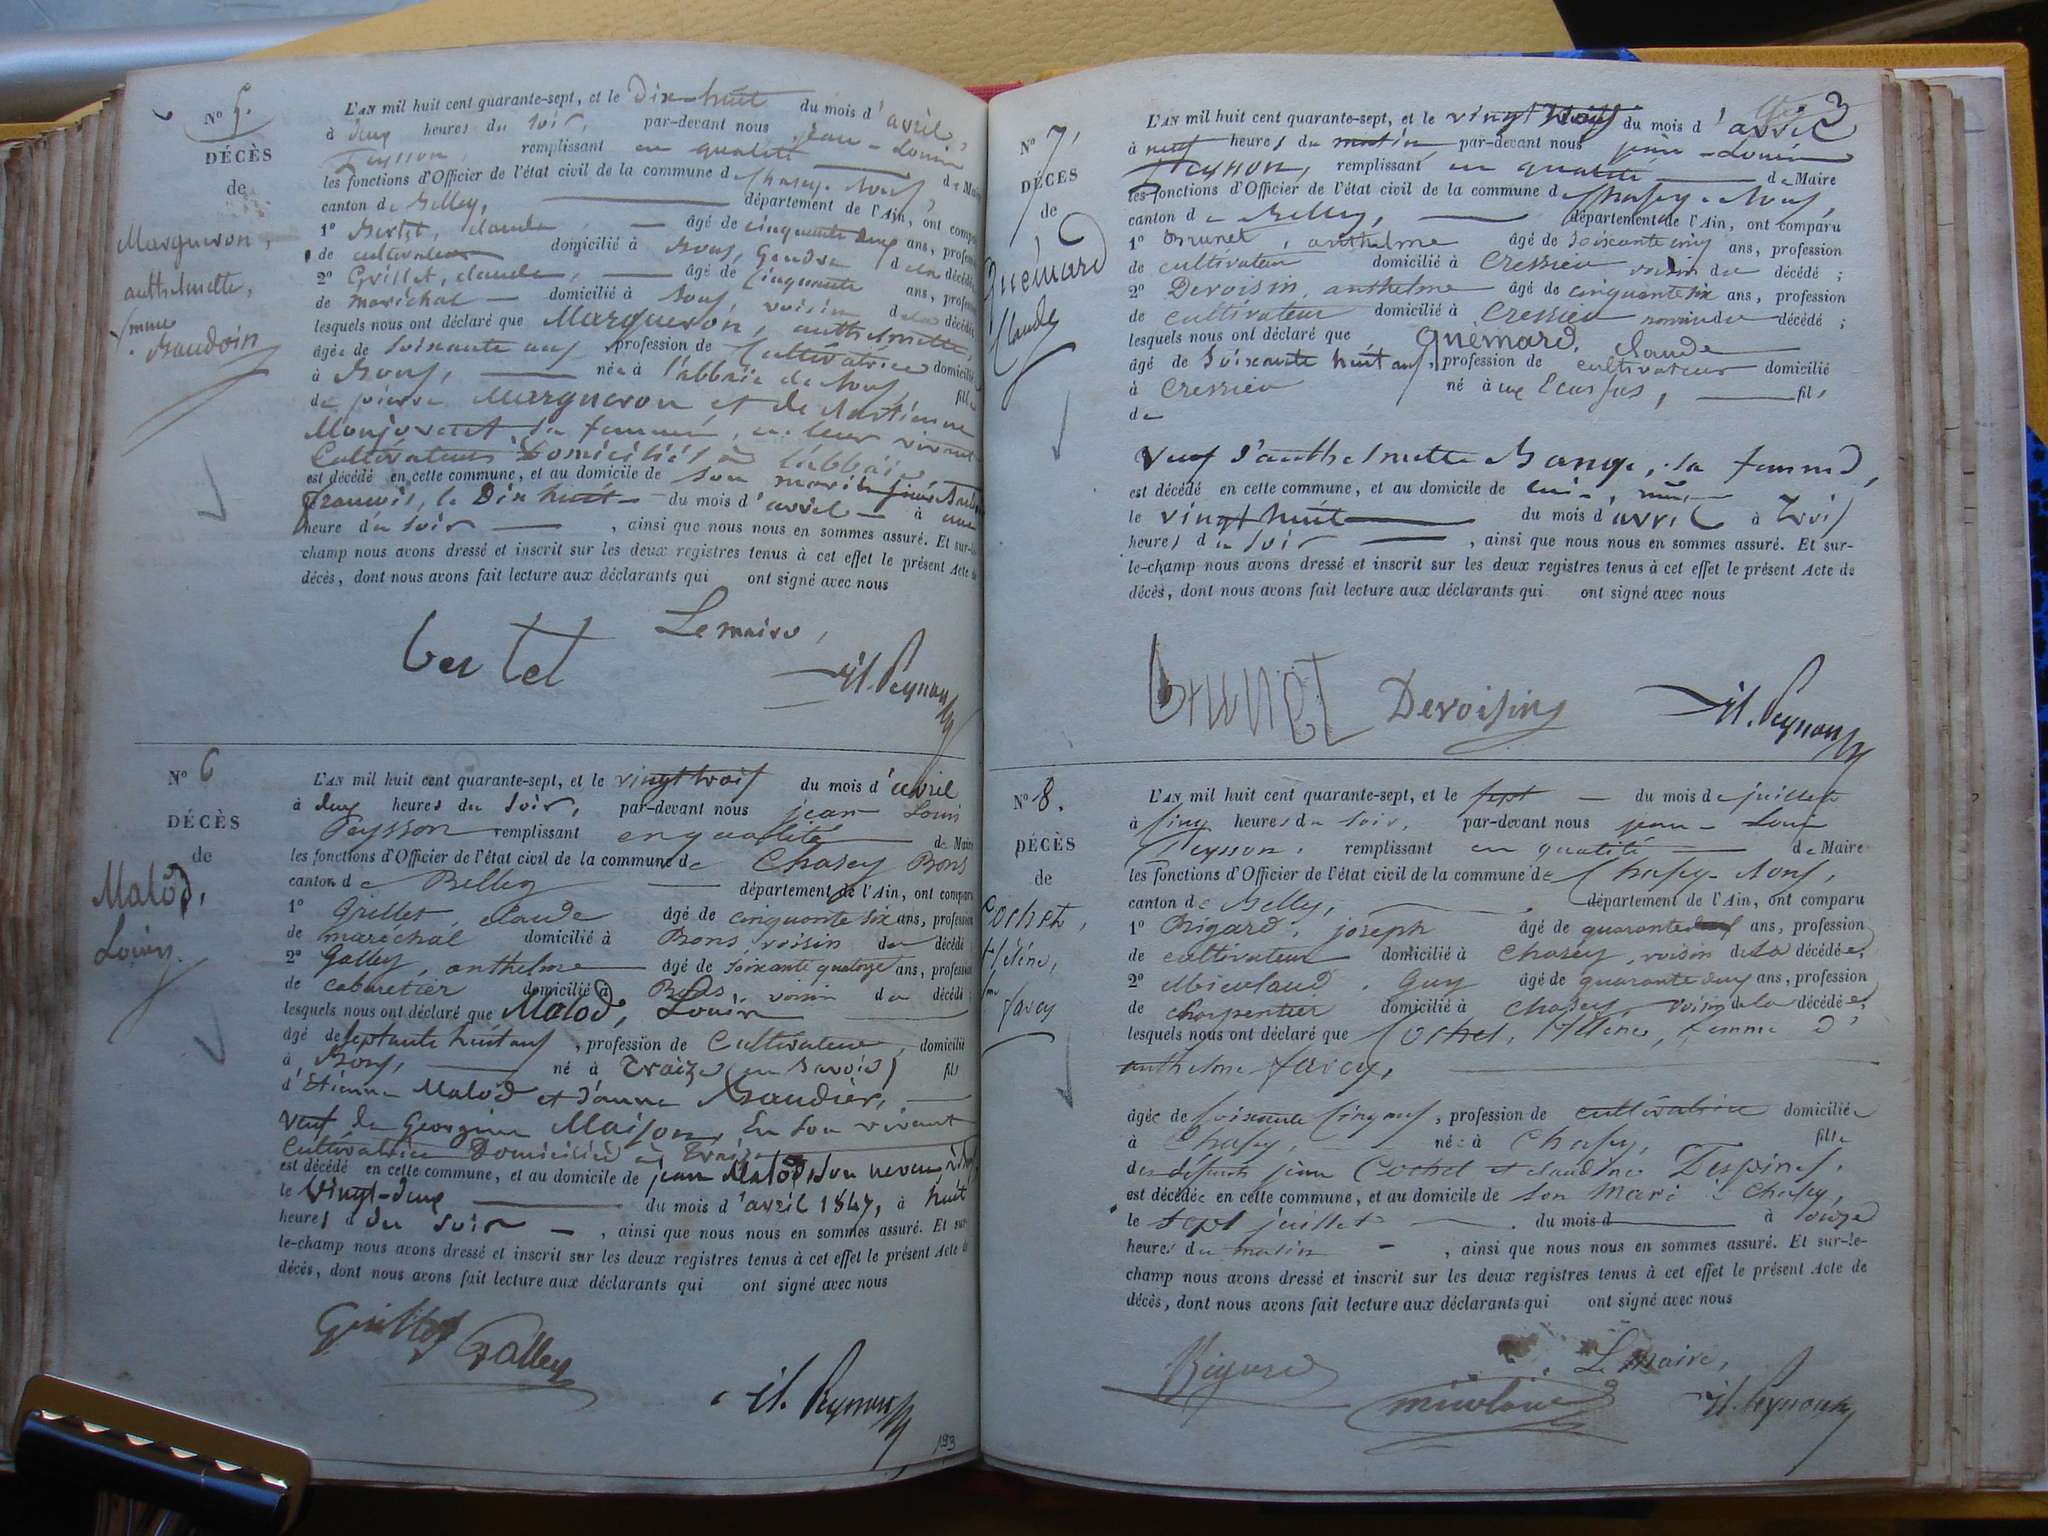 N° 5.
DÉCÈS
de
Margueron,
anthelmette,
femme
Baudoin
L'AN mil huit cent quarante-sept, et le Dix-huit du mois d'avril
à deux heures du soir, par-devant nous jean-Louis
Peysson, remplissant en qualité de Maire
les fonctions d'Officier de l'état civil de la commune de Chasey-Bons,
canton de Belley, département de l'Ain, ont comparu
1° Bertet, claude, âgé de cinquante deux ans, profession
de cultivateur domicilié à Bons, Gendre de la décédée
2° Grillet, claude, âgé de cinquante ans, profession
de maréchal domicilié à Bons, voisin de la décédée
lesquels nous ont déclaré que Margueron, anthelmette,
âgée de soixante ans, profession de Cultivatrice domiciliée
à Bons, née à l'abbaïe de Bons fille
de pierre Margueron et de
sa femme, en leur vivant
Cultivateurs Domiciliés à l'abbaïe
est décédé en cette commune, et au domicile de son mari
francois, le Dix huit du mois d'avril à une
heure du soir, ainsi que nous nous en sommes assuré. Et sur-le-
champ nous avons dressé et inscrit sur les deux registres tenus à cet effet le présent Acte de
décès, dont nous avons fait lecture aux déclarants qui ont signé avec nous
Lemaire,
bertet
Jl. Peysson
N° 6
DÉCÈS
de
Malod,
Louis.
L'AN mil huit cent quarante-sept, et le vingt trois du mois d'avril
à deux heures du soir, par-devant nous jean Louis
Peysson remplissant en qualité de Maire
les fonctions d'Officier de l'état civil de la commune de Chasey Bons
canton de Belley département de l'Ain, ont comparu
1° Grillet, claude âgé de cinquante six ans, profession
de maréchal domicilié à Bons voisin du décédé
2° Galley, anthelme âgé de soixante quatorze ans, profession
de cabaretier domicilié à Bons, voisin du décédé
lesquels nous ont déclaré que Malod, Louis
âgé de septante huit ans, profession de Cultivateur, domicilié
à Bons, né à Traize (en Savoie) fils
d'Etienne Malod et d'anne Baudier,
veuf de Georgine Maison, En son vivant
Cultivatrice Domiciliée à Traize
est décédé en cette commune, et au domicile de jean Malod son neveu
le vingt-deux du mois d'avril 1847, à huit
heures d du soir, ainsi que nous nous en sommes assuré. Et sur-
le-champ nous avons dressé et inscrit sur les deux registres tenus à cet effet le présent Acte de
décès, dont nous avons fait lecture aux déclarants qui ont signé avec nous
Grillet Galley
Jl. Peysson
193
3
N° 7,
DÉCÈS
de
Quémard
Claude
L'AN mil huit cent quarante-sept, et le vingt neuf du mois d'avril
à neuf heures du matin par-devant nous jean-Louis
Peysson, remplissant en qualité de Maire
les fonctions d'Officier de l'état civil de la commune de Chasey-Bons,
canton de Belley, département de l'Ain, ont comparu
1° Brunet, anthelme âgé de soixante cinq ans, profession
de cultivateur domicilié à Cressieu voisin du décédé ;
2° Devoisin, anthelme âgé de cinquante six ans, profession
de cultivateur domicilié à Cressieu voisin du décédé ;
lesquels nous ont déclaré que Quémard, claude
âgé de soixante huit ans, profession de cultivateur domicilié
à Cressieu né à fils
de
veuf d'anthelmette Bange, sa femme,
est décédé en cette commune, et au domicile de lui-même
le vingt huit du mois d'avril à trois
heures du soir, ainsi que nous nous en sommes assuré. Et sur-
le-champ nous avons dressé et inscrit sur les deux registres tenus à cet effet le présent Acte de
décès, dont nous avons fait lecture aux déclarants qui ont signé avec nous
brunet Devoisin Jl. Peysson
N° 8.
DÉCÈS
de
Cochet,
Hélène,
fme
favey
L'AN mil huit cent quarante-sept, et le sept du mois de juillet
à cinq heures du soir, par-devant nous jean-Louis
Peysson, remplissant en qualité de Maire
les fonctions d'Officier de l'état civil de la commune de Chasey-Bons,
canton de Belley, département de l'Ain, ont comparu
1° Rigard, joseph âgé de quarante ans, profession
de cultivateur domicilié à Chasey, voisin de la décédée,
2° Micoland, Guy âgé de quarante deux ans, profession
de charpentier domicilié à Chasey, voisin de la décédée,
lesquels nous ont déclaré que Cochet, Hélène, femme d'
anthelme favey,
âgée de soixante cinq ans, profession de cultivatrice domiciliée
à Chasey, née à Chasey, fille
des défunts jean Cochet et claudine Despines,
est décédée en cette commune, et au domicile de son mari à Chasey,
le sept juillet du mois d à onze
heures du matin, ainsi que nous nous en sommes assuré. Et sur-le-
champ nous avons dressé et inscrit sur les deux registres tenus à cet effet le présent Acte de
décès, dont nous avons fait lecture aux déclarants qui ont signé avec nous
Le Maire,
Rigard micoland Jl. Peysson